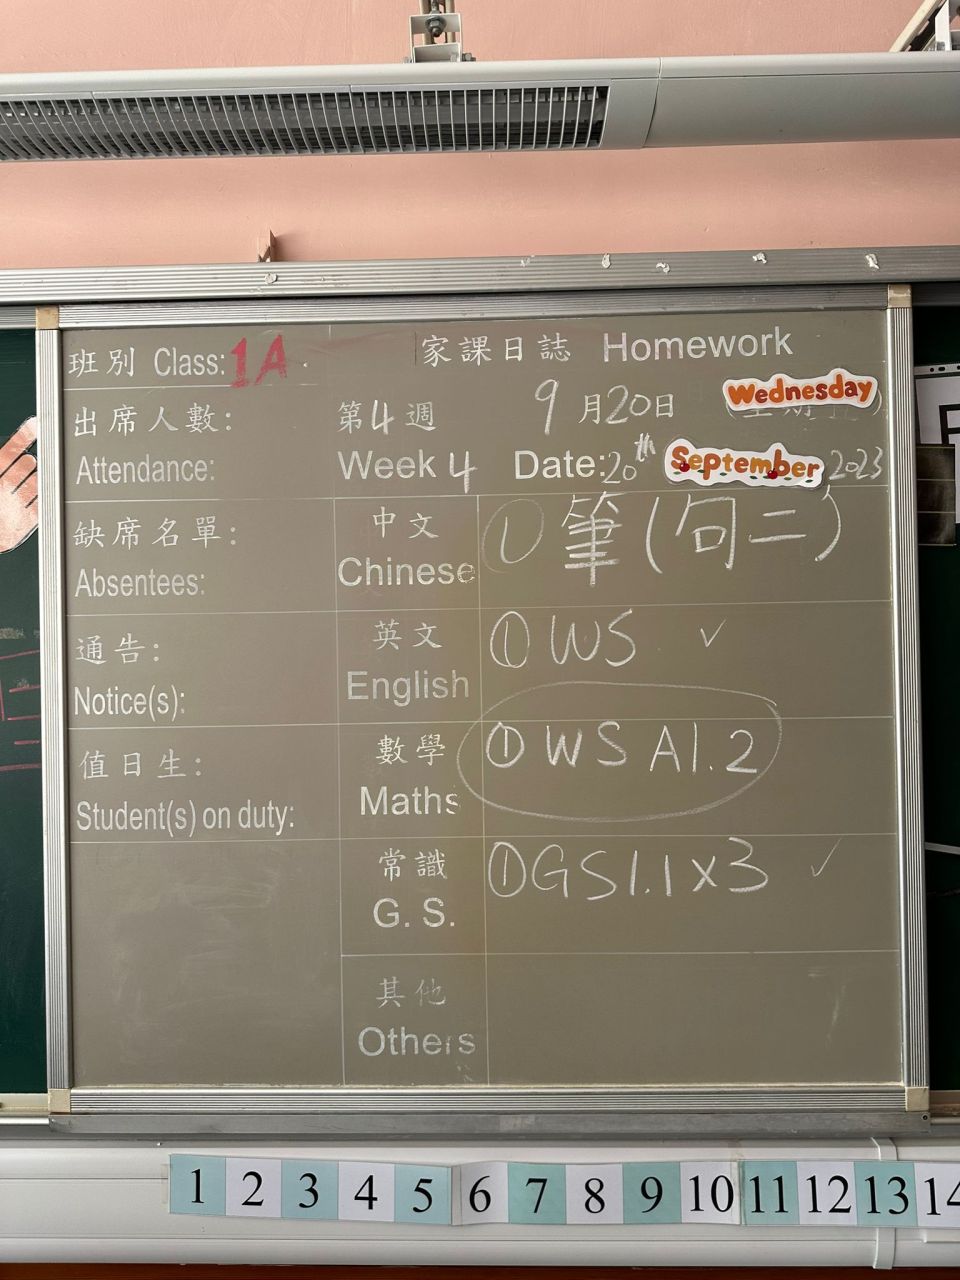 班別 Class: 1A 家課日誌 Homework
出席人數: 第4週 9月20日 Wednesday
Attendance: Week 4 Date: 20th September 2023
缺席名單: 中文 ① 筆(句二)
Absentees: Chinese
通告: 英文 ① WS ✓
Notice(s): English
值日生: 數學 ① WS A1.2
Student(s) on duty: Maths
常識 ① GS1.1x3 ✓
G. S.
其他
Others
1 2 3 4 5 6 7 8 9 10 11 12 13 14